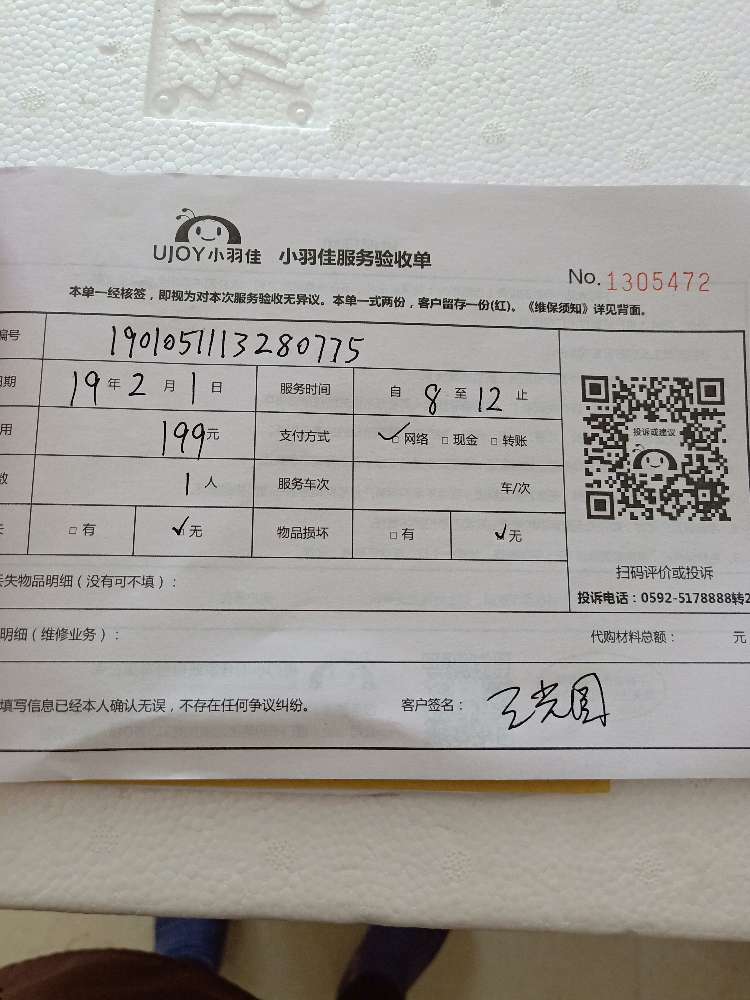 UJOY小羽佳 小羽佳服务验收单
No. 1305472
本单一经核签，即视为对本次服务验收无异议。本单一式两份，客户留存一份(红)。《维保须知》详见背面。
编号 1901051113280775
日期 19 年 2 月 1 日 服务时间 自 8 至 12 止
用 199元 支付方式 ✓□ 网络 □ 现金 □ 转账
数 1 人 服务车次 车/次
□ 有 ✓□ 无 物品损坏 □ 有 ✓□ 无
投诉或建议
扫码评价或投诉
投诉电话：0592-5178888转2
丢失物品明细（没有可不填）：
明细（维修业务）： 代购材料总额： 元
填写信息已经本人确认无误，不存在任何争议纠纷。 客户签名：